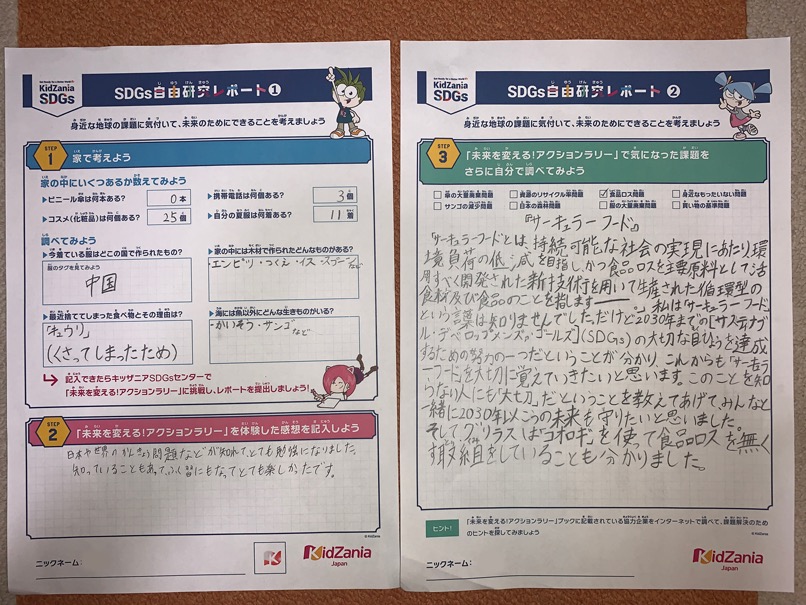 KidZania
SDGs
SDGs自由研究レポート❶
身近な地球の課題に気付いて、未来のためにできることを考えましょう
STEP 1 家で考えよう
家の中にいくつあるか数えてみよう
▶ビニール傘は何本ある? 0本
▶携帯電話は何個ある? 3個
▶コスメ(化粧品)は何個ある? 25個
▶自分の夏服は何着ある? 11着
調べてみよう
▶今着ている服はどこの国で作られたもの?
服のタグを見てみよう
中国
▶家の中には木材で作られたどんなものがある?
エンピツ・つくえ・イス・スプーンなど
▶最近捨ててしまった食べ物とその理由は?
「キュウリ」
(くさってしまったため)
▶海には魚以外にどんな生きものがいる?
・かいそう・サンゴなど
記入できたらキッザニアSDGsセンターで
「未来を変える!アクションラリー」に挑戦し、レポートを提出しましょう!
STEP 2 「未来を変える!アクションラリー」を体験した感想を記入しよう
日本や世界のかんきょう問題などが知れて、とても勉強になりました。
知っていることもあって、ふく習にもなってとても楽しかったです。
© KidZania
ニックネーム:
KidZania
Japan
KidZania
SDGs
SDGs自由研究レポート❷
身近な地球の課題に気付いて、未来のためにできることを考えましょう
STEP 3 「未来を変える!アクションラリー」で気になった課題を
さらに自分で調べてみよう
□ 傘の大量廃棄問題 □ 資源のリサイクル率問題 ☑ 食品ロス問題 □ 身近なもったいない問題
□ サンゴの減少問題 □ 日本の森林問題 □ 服の大量廃棄問題 □ 買い物の基準問題
『サーキュラーフード』
「サーキュラーフードとは、持続可能な社会の実現にあたり、環
境負荷の低減を目指し、かつ食品ロスを主要原料として活
用すべく開発された新技術を用いて生産された循環型の
食材及び食品のことを指します――。」私は「サーキュラーフード」
という言葉は知りませんでした。だけど2030年までの[サステナブ
ル・デベロップメンズ・ゴールズ](SDGs)の大切な目ひょうを達成
するための努力の一つだということが分かり、これからも「サーキュラ
ーフード」を大切に覚えていきたいと思います。このことを知
らない人にも「大切」だということを教えてあげて、みんなと一
緒に2030年以こうの未来も守りたいと思いました。
そして、グリラスは「コオロギ」を使って食品ロスを無く
す取組をしていることも分かりました。
© KidZania
ヒント! 「未来を変える!アクションラリー」ブックに記載されている協力企業をインターネットで調べて、課題解決のため
のヒントを探してみましょう
ニックネーム:
KidZania
Japan